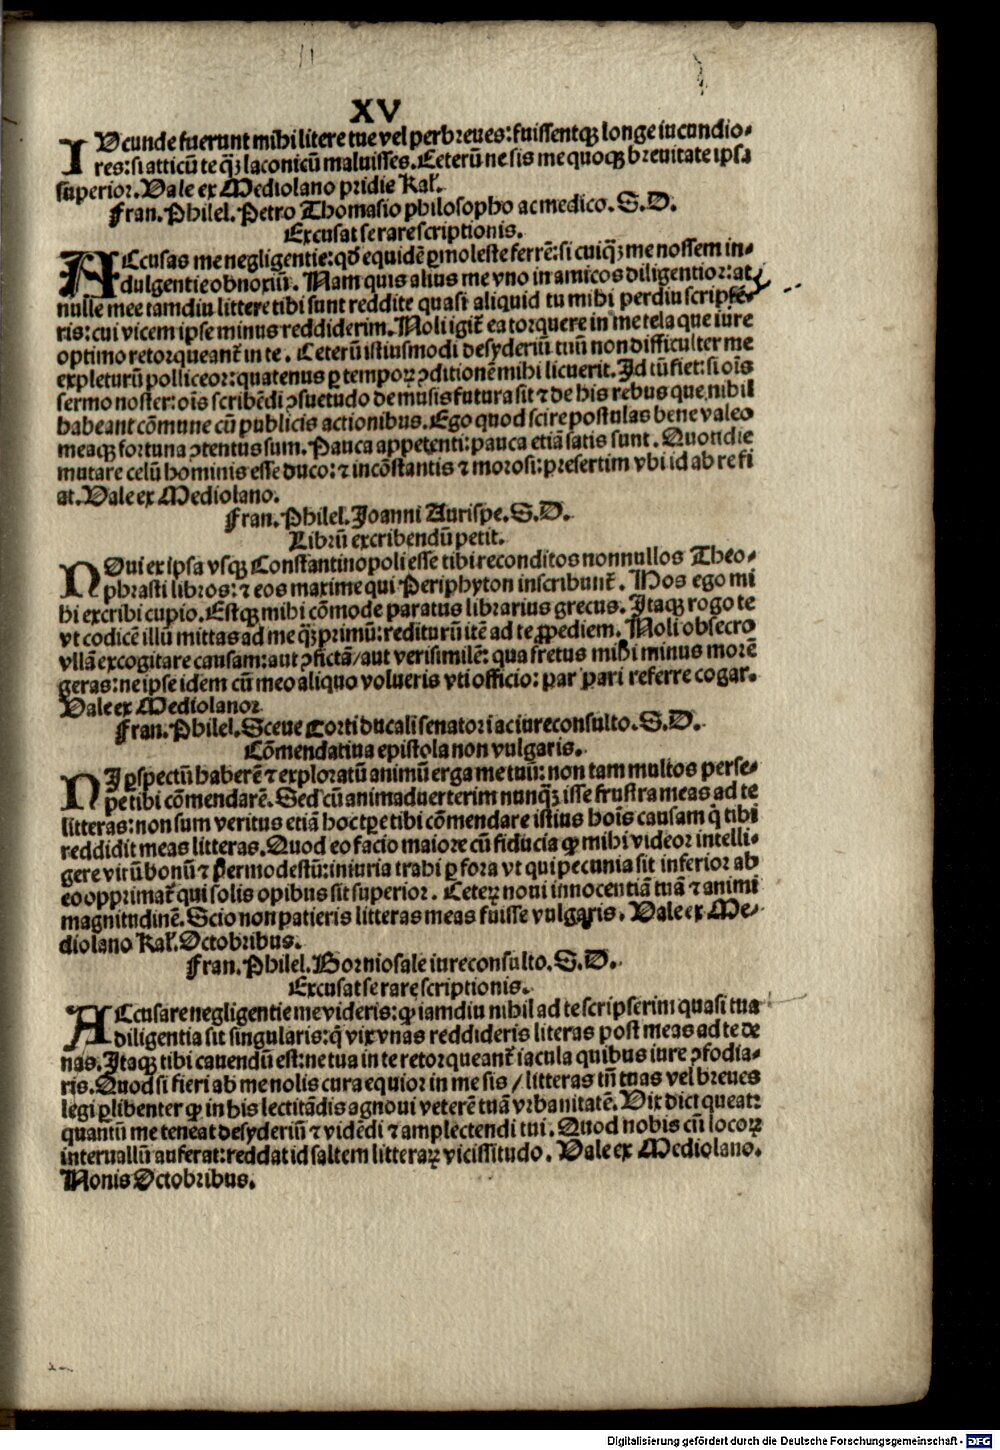 XV
IUcunde fuerunt mihi litere tue vel perbreues: fuissentqꝫ longe iucundio⸗
res: si atticū te q̄ꝫ laconicū maluisses. Ceterū ne sis me quoqꝫ breuitate ipsa
superior. Vale ex Mediolano pridie Kal̄.
Fran. Philel. Petro Thomasio philosopho ac medico. S. D.
Excusat se rare scriptionis.
ACcusas me negligentie: qđ equidē ꝑmoleste ferrē: si cuiq̄ꝫ me nossem in⸗
dulgentie obnoxiū. Nam quis alius me vno in amicos diligentior: at
nulle mee tamdiu littere tibi sunt reddite quasi aliquid tu mihi perdiu scripse⸗
ris: cui vicem ipse minus reddiderim. Noli igit̄ ea torquere in me tela que iure
optimo retorqueant̄ in te. Ceterū istiusmodi desyderiū tuū non difficulter me
expleturū polliceor: quatenus ꝑ temporꝝ ꝯditionē mihi licuerit. Id tū fiet: si oīs
sermo noster: oīs scribēdi ꝯsuetudo de musis futura sit ⁊ de his rebus que nihil
habeant cōmune cū publicis actionibus. Ego quod scire postulas bene valeo
meaqꝫ fortuna ꝯtentus sum. Pauca appetenti: pauca etiā satis sunt. Quotidie
mutare celū hominis esse duco: ⁊ incōstantis ⁊ morosi: presertim vbi id ab re fi
at. Vale ex Mediolano.
Fran. Philel. Joanni Aurispe. S. D.
Librū excribendū petit.
NOui ex ipsa vsqꝫ Constantinopoli esse tibi reconditos nonnullos Theo⸗
phrasti libros: ⁊ eos maxime qui Periphyton inscribunt̄. Hos ego mi
hi excribi cupio. Estqꝫ mihi cōmode paratus librarius grecus. Itaqꝫ rogo te
vt codicē illū mittas ad me q̄ꝫprimū: rediturū itē ad te ꝓpediem. Noli obsecro
vllā excogitare causam: aut ꝯfictā/ aut verisimilē: qua fretus mihi minus morē
geras: ne ipse idem cū meo aliquo volueris vti officio: par pari referre cogar.
Vale ex Mediolano.
Fran. Philel. Sceue Corti ducali senatori ac iureconsulto. S. D.
Cōmendatiua epistola non vulgaris.
NI ꝑspectū haberē ⁊ exploratū animū erga me tuū: non tam multos perse⸗
pe tibi cōmendarē. Sed cū animaduerterim nunq̄ꝫ isse frustra meas ad te
litteras: non sum veritus etiā hoc tꝑe tibi cōmendare istius hoīs causam q̄ tibi
reddidit meas litteras. Quod eo facio maiore cū fiducia ꝙ mihi videor intelli⸗
gere virū bonū ⁊ permodestū: iniuria trahi ꝑ fora vt qui pecunia sit inferior ab
eo opprimat̄ qui solis opibus sit superior. Ceterꝝ noui innocentiā tuā ⁊ animi
magnitudinē. Scio non patieris litteras meas fuisse vulgaris. Vale ex Me⸗
diolano Kal̄. Octobribus.
Fran. Philel. Bornio sale iureconsulto. S. D.
Excusat se rare scriptionis.
ACcusare negligentie me videris: ꝙ iamdiu nihil ad te scripserim quasi tua
diligentia sit singularis: q̄ vix vnas reddideris literas post meas ad te de
nas. Itaqꝫ tibi cauendū est: ne tua in te retorqueant̄ iacula quibus iure ꝯfodia⸗
ris. Quod si fieri ab me nolis cura equior in me sis / litteras tn̄ tuas vel breues
legi ꝑlibenter ꝙ in his lectitādis agnoui veterē tuā vrbanitatē. Vix dici queat:
quantū me teneat desyderiū ⁊ vidēdi ⁊ amplectendi tui. Quod nobis cū locorꝝ
interuallū auferat: reddat id saltem litterarꝝ vicissitudo. Vale ex Mediolano.
Nonis Octobribus.
Digitalisierung gefördert durch die Deutsche Forschungsgemeinschaft - DFG